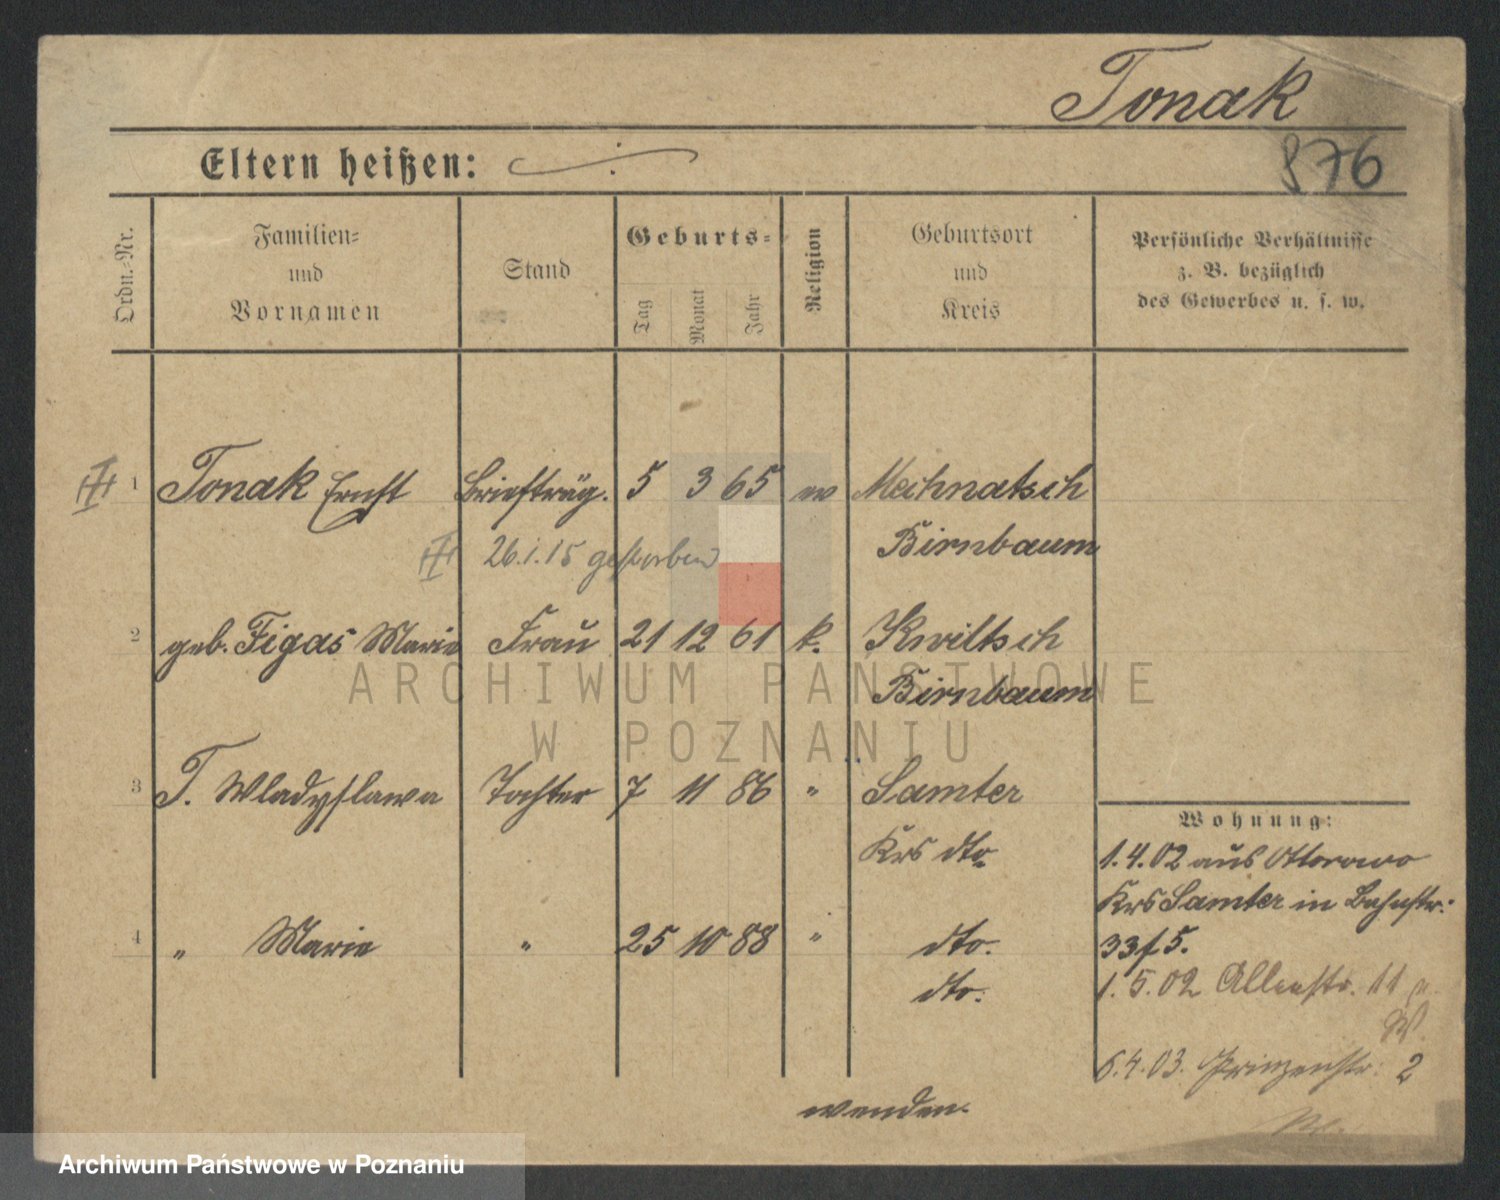 Tonak
Eltern heißen:
876
Ordn.-Nr.
Familien-
und
Vornamen
Stand
Geburts-
Tag
Monat
Jahr
Religion
Geburtsort
und
Kreis
Persönliche Verhältnisse
z. B. bezüglich
des Gewerbes u. s. w.
1 Tonak Ernst Briefträg. 5 3 65 ev Mechnatsch
26.1.15 gestorben Birnbaum
2 geb. Figas Marie Frau 21 12 61 k. Kwiltsch
Birnbaum
3 T. Wladyslawa Tochter 7 11 86 " Samter
Krs dto.
4 " Marie " 25 10 88 " dto.
dto.
Wohnung:
1.4.02 aus Ottorowo
Krs Samter in Bahnstr.
33 f 5.
1.5.02 Allenstr. 11
W.
6.4.03. Prinzenstr. 2
wenden.
ARCHIWUM PAŃSTWOWE
W POZNANIU
Archiwum Państwowe w Poznaniu